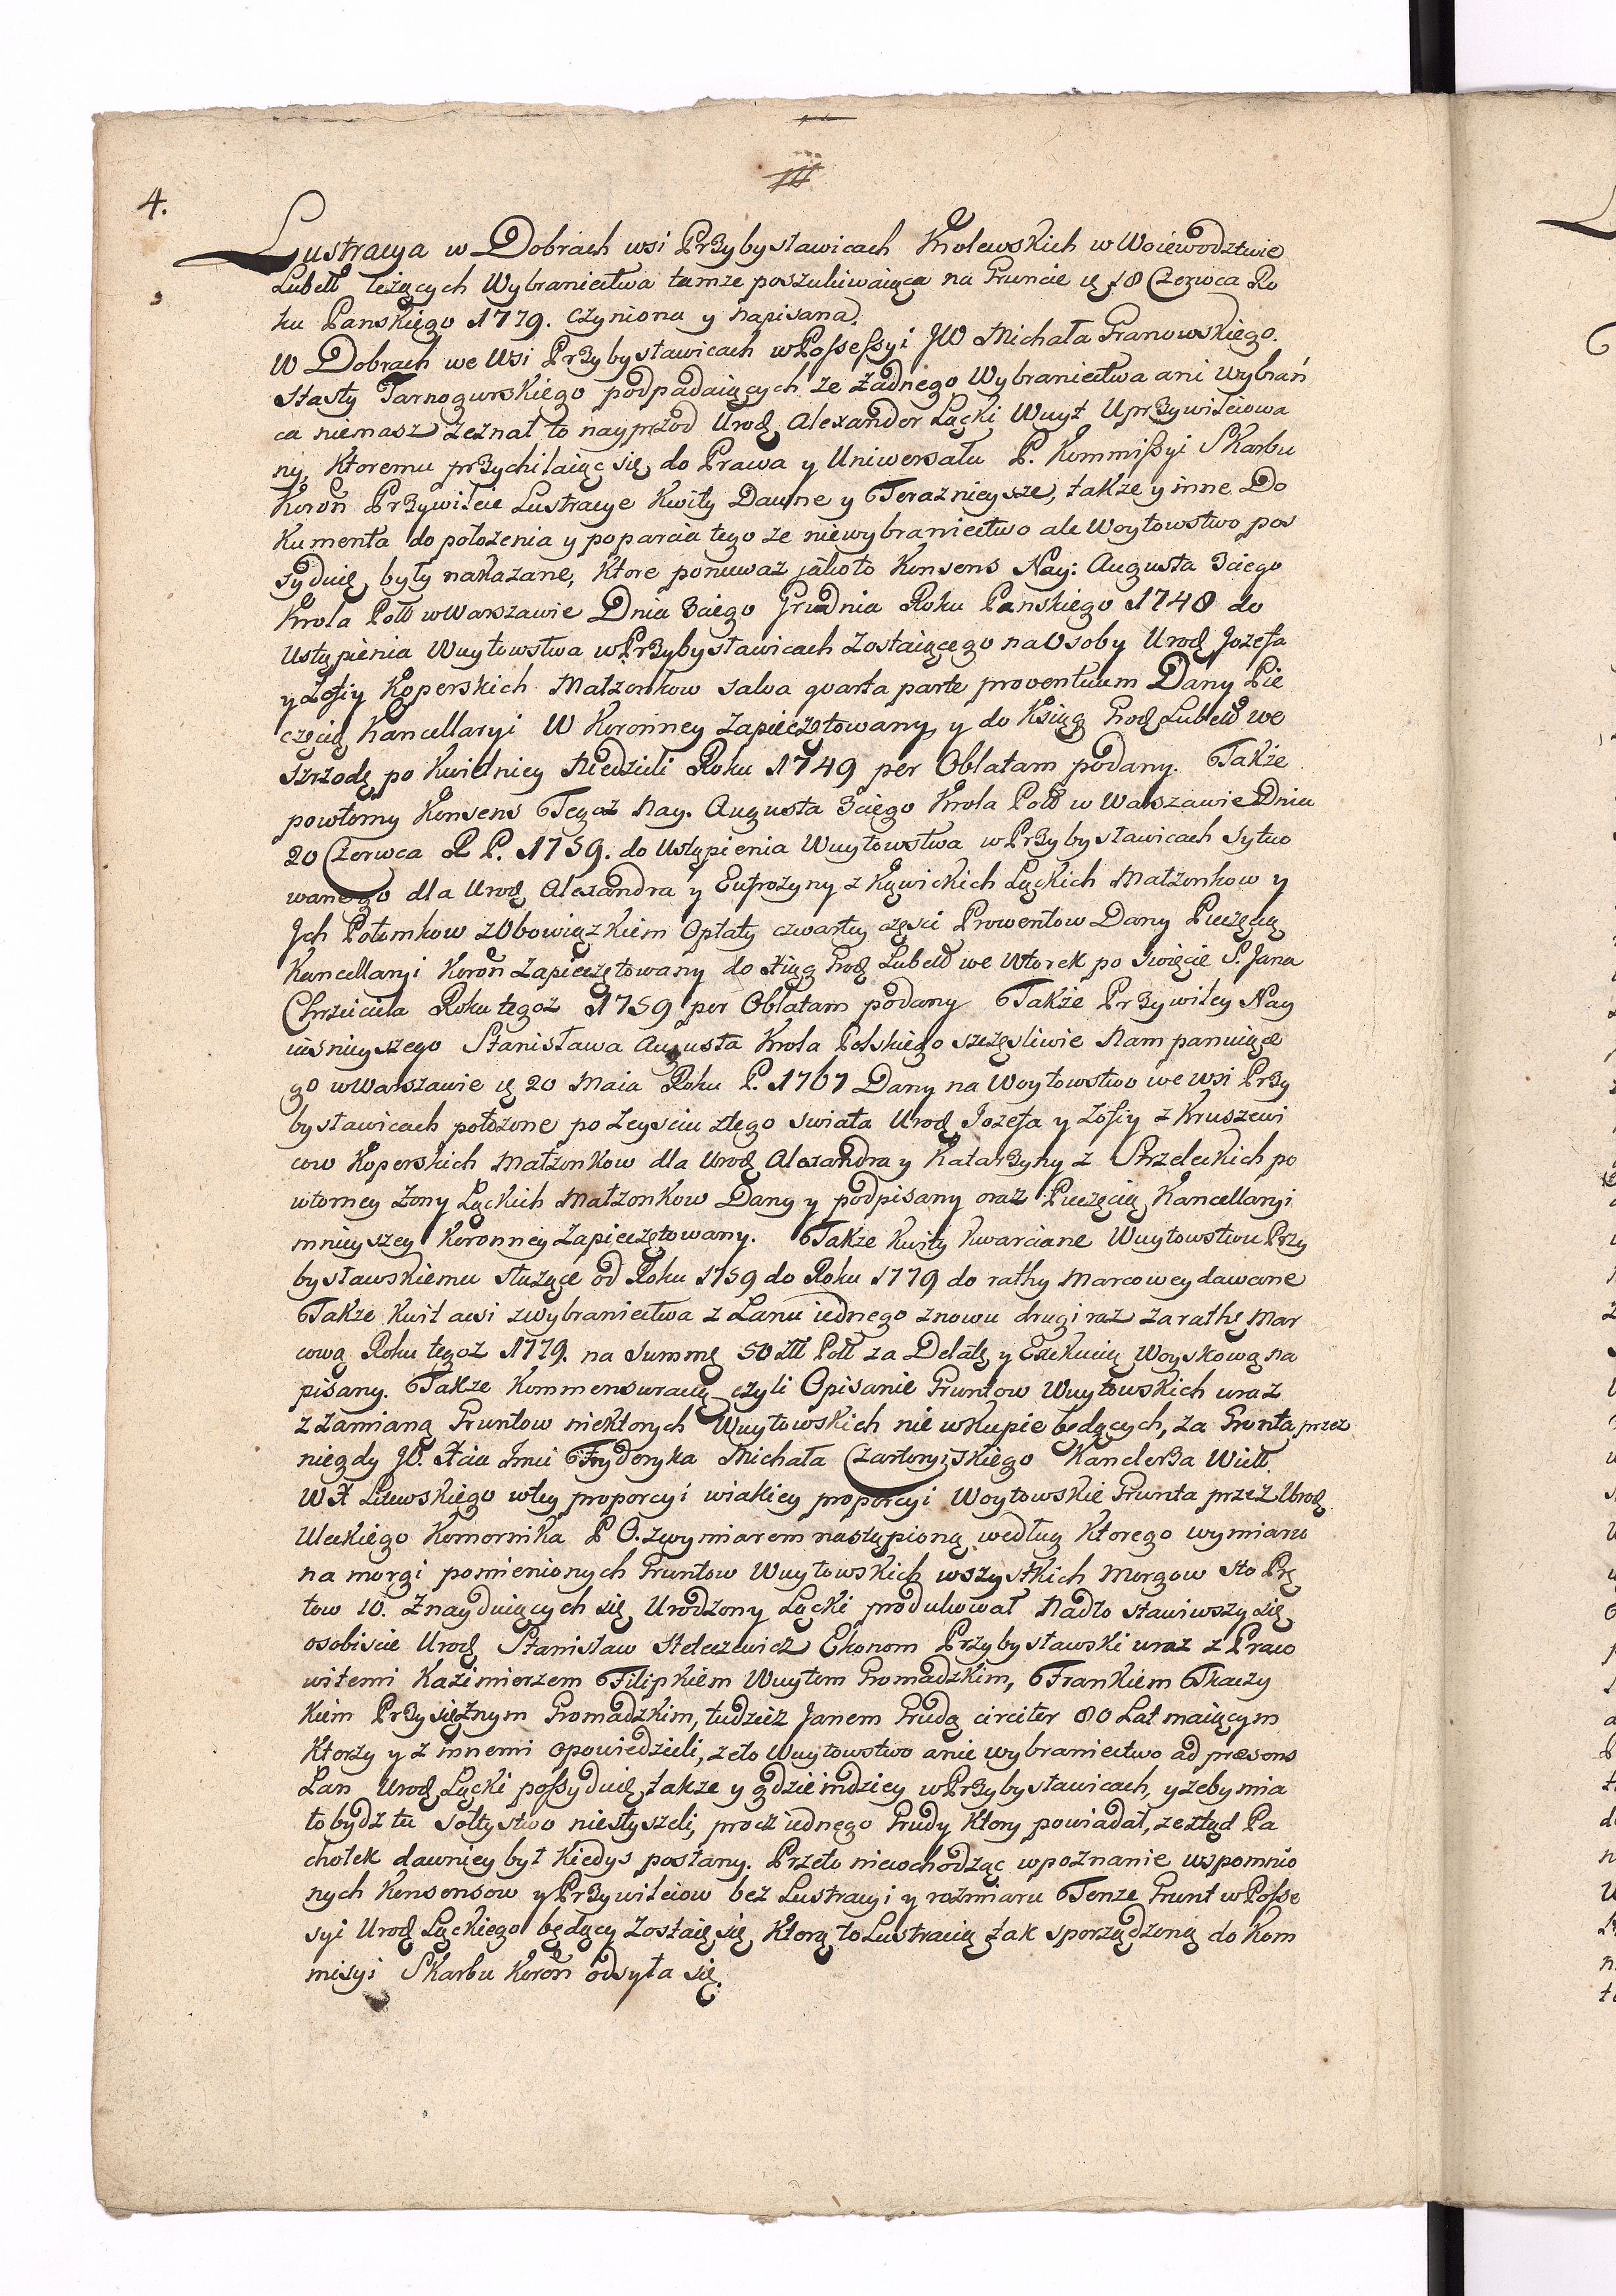 4.
Lustracya w Dobrach wsi Przybysławicach Krolewskich w Woiewodztwie
Lubell leżących Wybraniectwa tamze poszukiwaiąca na Gruncie d. 18 Czerwca Ro
ku Panskiego 1779. czyniona y napisana.
W Dobrach we Wsi Przybysławicach w Possessyi JW Michała Granowskiego.
Stasty Tarnogurskiego podpadaiących ze żadnego Wybraniectwa ani Wybrań
ca niemasz zeznał to nayprzod Urodz Alexander Lącki Wuyt Uprzywileiowa
ny, ktoremu przychilaiąc się do Prawa y Uniwersału P. Kommissyi Skarbu
Koroń Przywileie Lustracye Kwity Dawne y Teraznieysze, także y inne Do
kumenta do połozenia y poparcia tego ze niewybraniectwo ale Woytowstwo pos
syduię, były nakazane, ktore poniewaz jakoto Konsens Nay: Augusta 3ciego
Krola Poll w Warszawie Dnia 3ciego Grudnia Roku Panskiego 1748 do
Ustąpienia Wuytowstwa w Przybysławicach zostaiącego na Osoby Urodz Jozefa
y Zofiy Koperskich Małzonkow salva quarta parte proventuum Dany Pie
częcią Kancellaryi W Koronney zapieczętowany y do Ksiąg Grodz Lubell we
Szrzodę po Kwietniey Niedzieli Roku 1749 per Oblatam podany. Także
powtorny Konsens Tegoz Nay. Augusta 3ciego Krola Poll w Warszawie Dnia
20 Czerwca R P. 1759. do Ustąpienia Wuytowstwa w Przybysławicach sytuo
wanego dla Urodz Alexandra y Eufrozyny z Kąwickich Ląckich Małzonkow y
Jch Potomkow z Obowiązkiem Opłaty czwartey częsci Prowentow Dany Pieczęcią
Kancellaryi Koroń zapieczętowany do Xiąg Grodz Lubell we Wtorek po Swięcie S. Jana
Chrzciciela Roku tegoz 1759 per Oblatam podany Także Przywiley Nay
iasnieyszego Stanisława Augusta Krola Polskiego szczęsliwie Nam panuiące
go w Warszawie d. 20 Maia Roku P. 1767 Dany na Woytowstwo we wsi Przy
bysławicach położone po zeysciu ztego swiata Urodz Jozefa y Zofiy z Kruszewi
cow Koperskich Małzonkow dla Urodz Alexandra y Katarzyny z Strzeleckich po
wtorney żony Ląckich Małzonkow Dany y podpisany oraz Pieczęcią Kancellaryi
mnieyszey Koronney zapieczętowany. Takze Kwity Kwarciane Wuytowstwu Przy
bysławskiemu służące od Roku 1759 do Roku 1779 do rathy Marcowey dawane
Takze Kwit acsi zwybraniectwa z Lanu iednego znowu drugi raz za rathę Mar
cową Roku tegoz 1779. na Summę 50 zll Poll za Delatę y Exekucię Woyskową na
pisany. Takze Kommensuracią czyli Opisanie Gruntow Wuytowskich wraz
z zamianą Gruntow niektorych Wuytowskich nie wkupie będących, za Grunta, przez
niegdy JO. Xcia Jmci Fryderyka Michała Czartoryiskiego Kanclerza Wiell.
WX Litewskiego wtey proporcyi wiakiey proporcyi Woytowskie Grunta przez Urodz
Uleckiego Komornika P O. zwymiarem nastąpioną według ktorego wymiaru
na morgi pomienionych Gruntow Wuytowskich wszystkich Morgow sto Prę
tow 10. znayduiących się Urodzony Lącki produkował Nadto stawiwszy się
osobiscie Urodz Stanislaw Stelczewicz Ekonom Przybysławski wraz z Praco
witemi Kazimierzem Filipkiem Wuytem Gromadzkim, Frankiem Tkaczy
kiem Przysiężnym Gromadzkim, tudziez Janem Grudą circiter 80 Lat maiącym
ktorzy y z innemi opowiedzieli, zeto Wuytowstwo anie wybraniectwo ad præsens
Lan Urodz Lącki possyduię, takze y gdzieindziey w Przybysławicach, yzeby mia
to bydz tu Sołtystwo niesłyszeli, procz iednego Grudy ktory powiadał, ze ztąd Pa
chołek dawniey był kiedys posłany. Przeto niewchodząc wpoznanie wspomnio
nych Konsensow y Przywileiow bez Lustracyi y rozmiaru Tenze Grunt w Posse
syi Urodz Ląckiego będący zostaie się, ktorą to Lustracią tak sporządzoną do Kom
misyi Skarbu Koroń odsyła się.